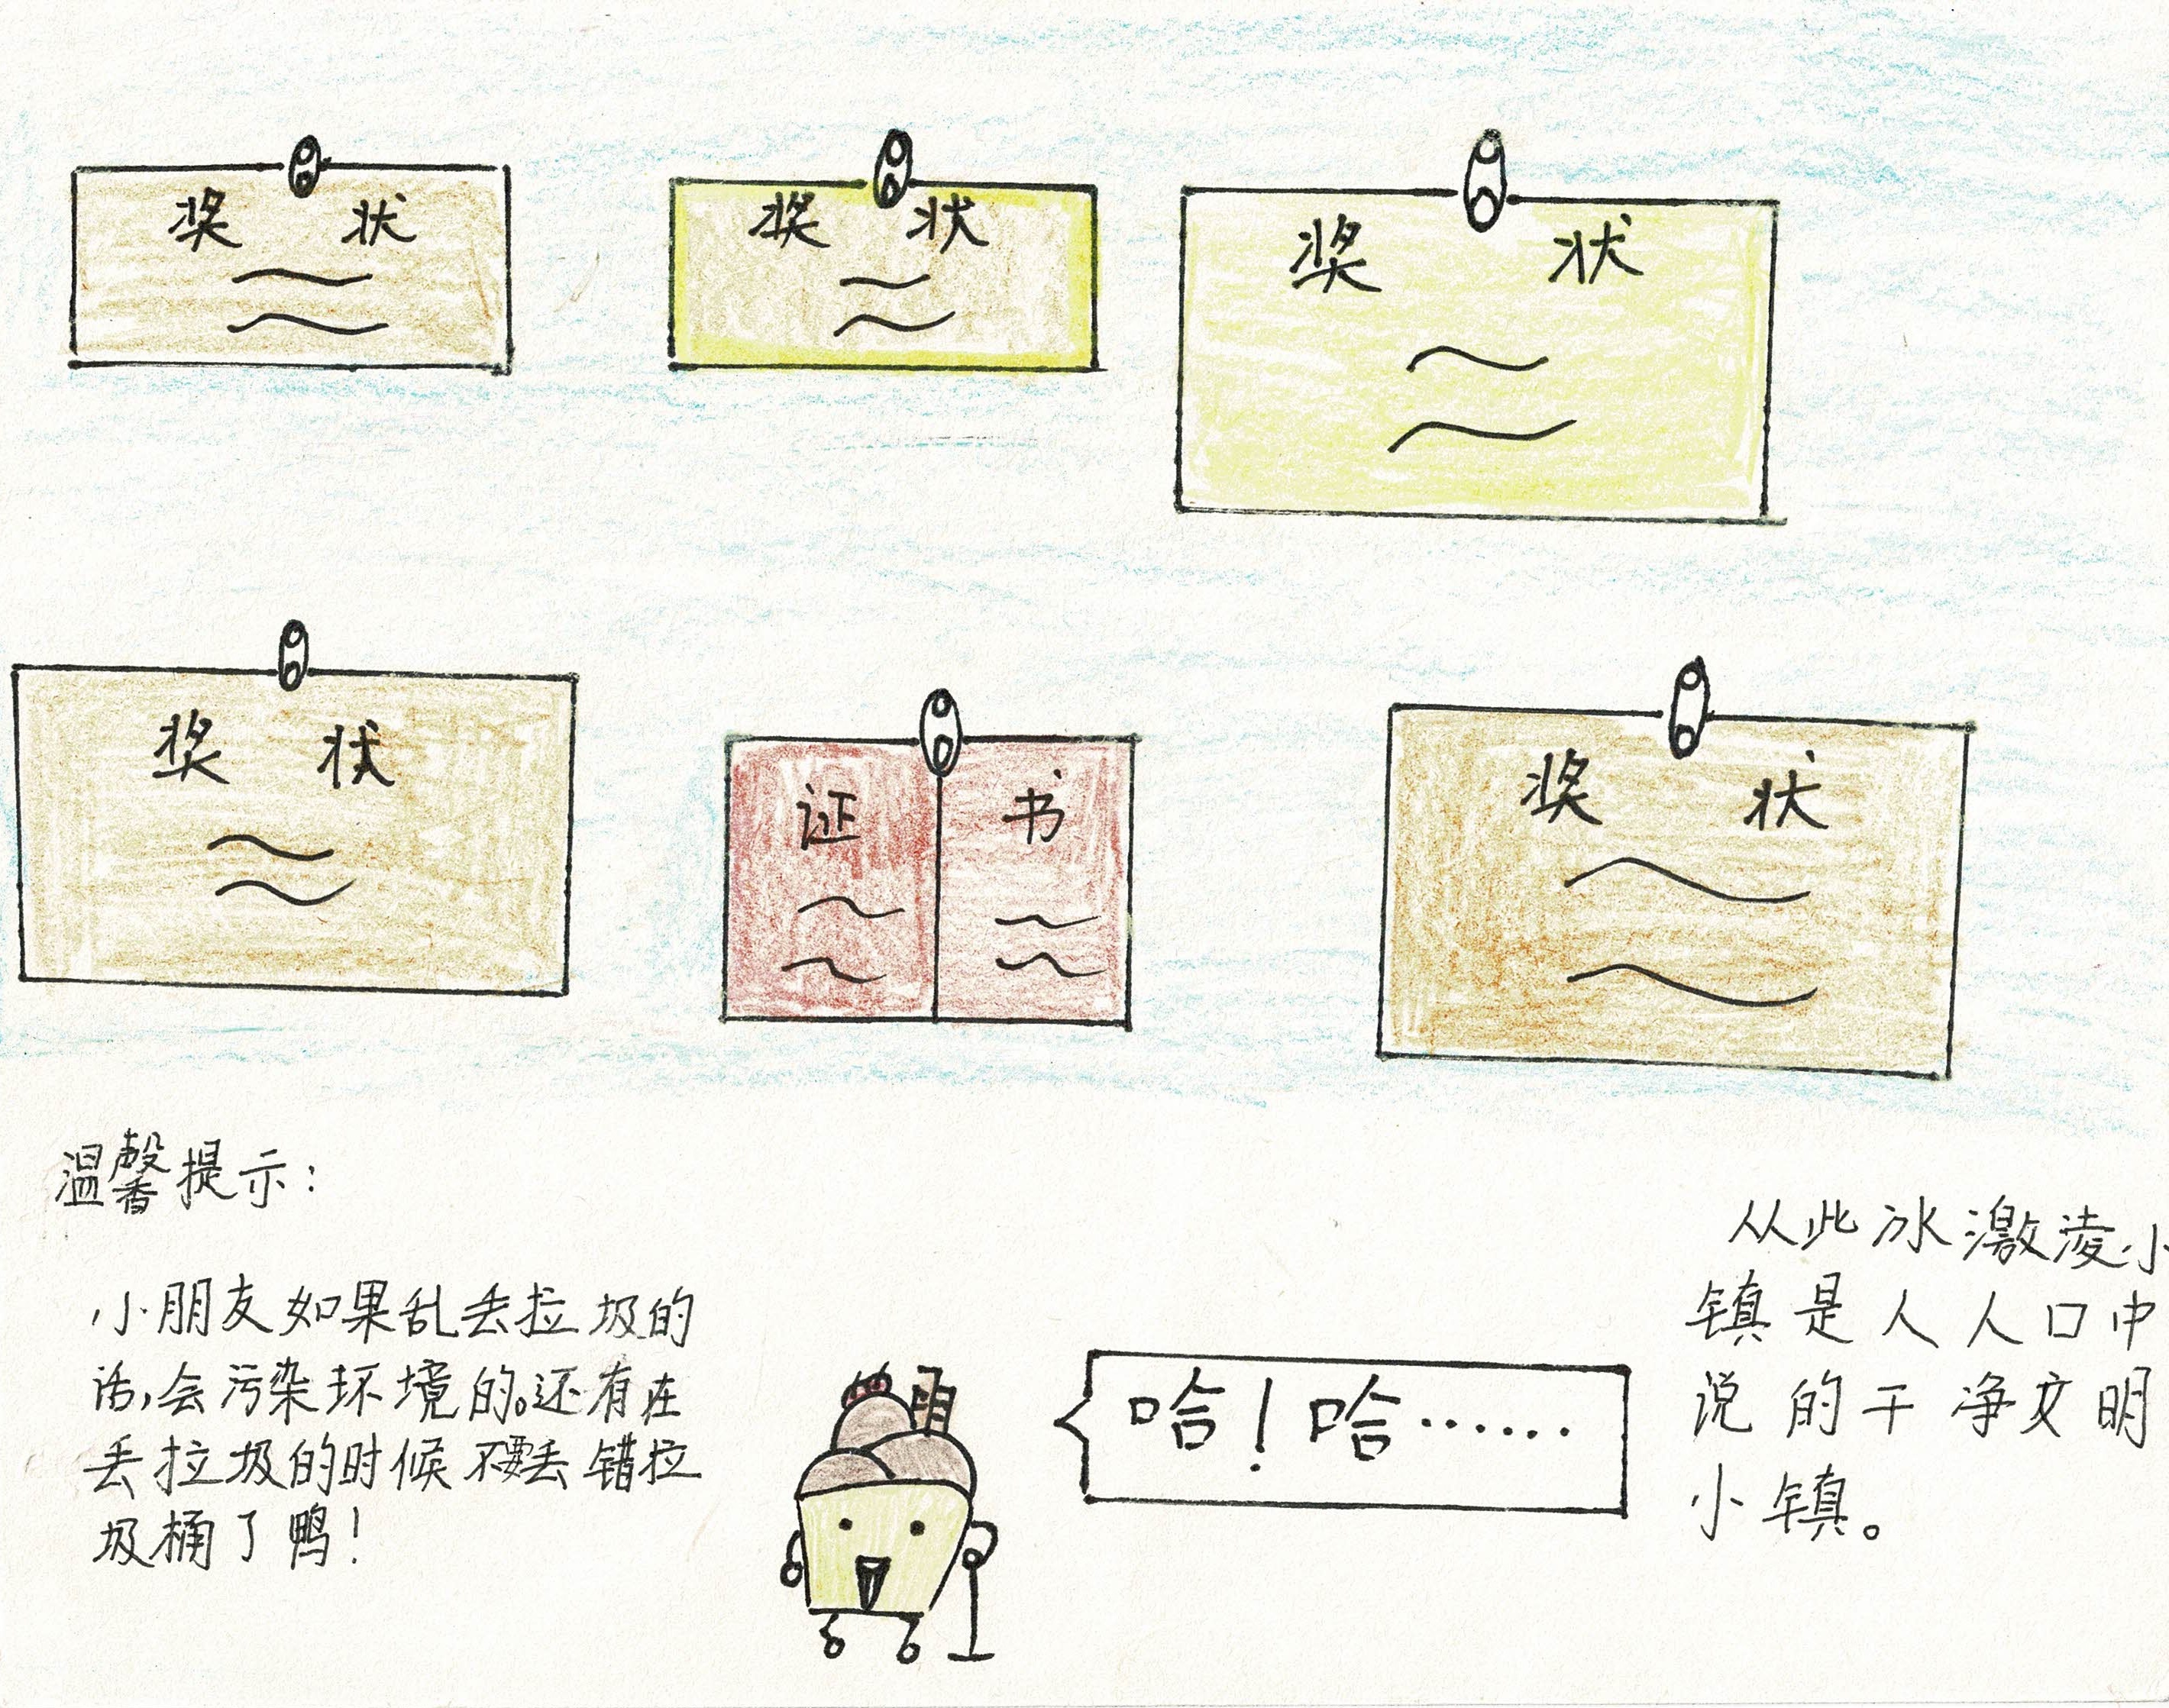 奖 状
奖 状
奖 状
奖 状
证 书
奖 状
温馨提示：
小朋友如果乱丢拉圾的
话，会污染环境的。还有在
丢拉圾的时候不要丢错拉
圾桶了鸭！
哈！哈……
从此冰激凌小
镇是人人口中
说的干净文明
小镇。